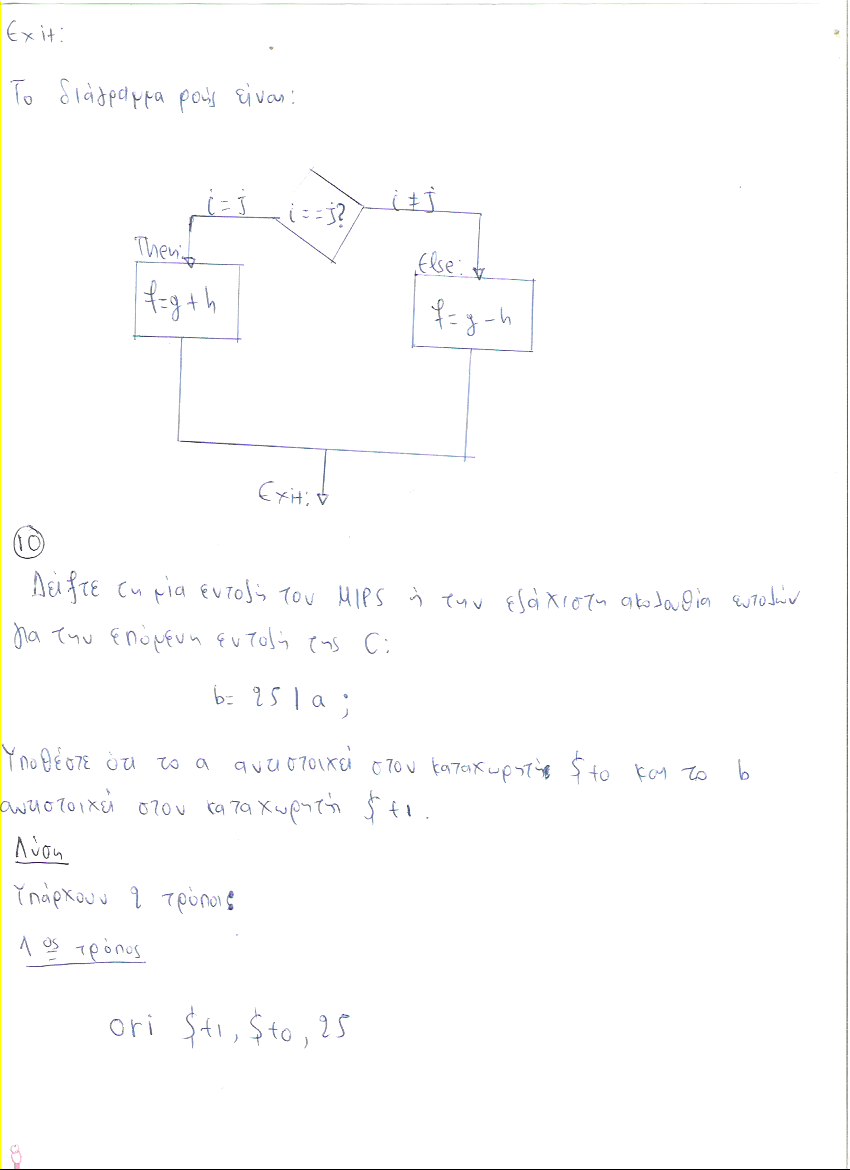 Exit:
Το διάγραμμα ροής είναι:
i = j
i==j?
i ≠ j
Then:
Else:
f=g+h
f=g-h
Exit:
10
Δείξτε τη μία εντολή του MIPS ή την ελάχιστη ακολουθία εντολών
για την επόμενη εντολή της C:
b= 25 | a ;
Υποθέστε ότι το a αντιστοιχεί στον καταχωρητή $t0 και το b
αντιστοιχεί στον καταχωρητή $t1.
Λύση
Υπάρχουν 2 τρόποι:
1ος τρόπος
ori $t1, $t0, 25
8